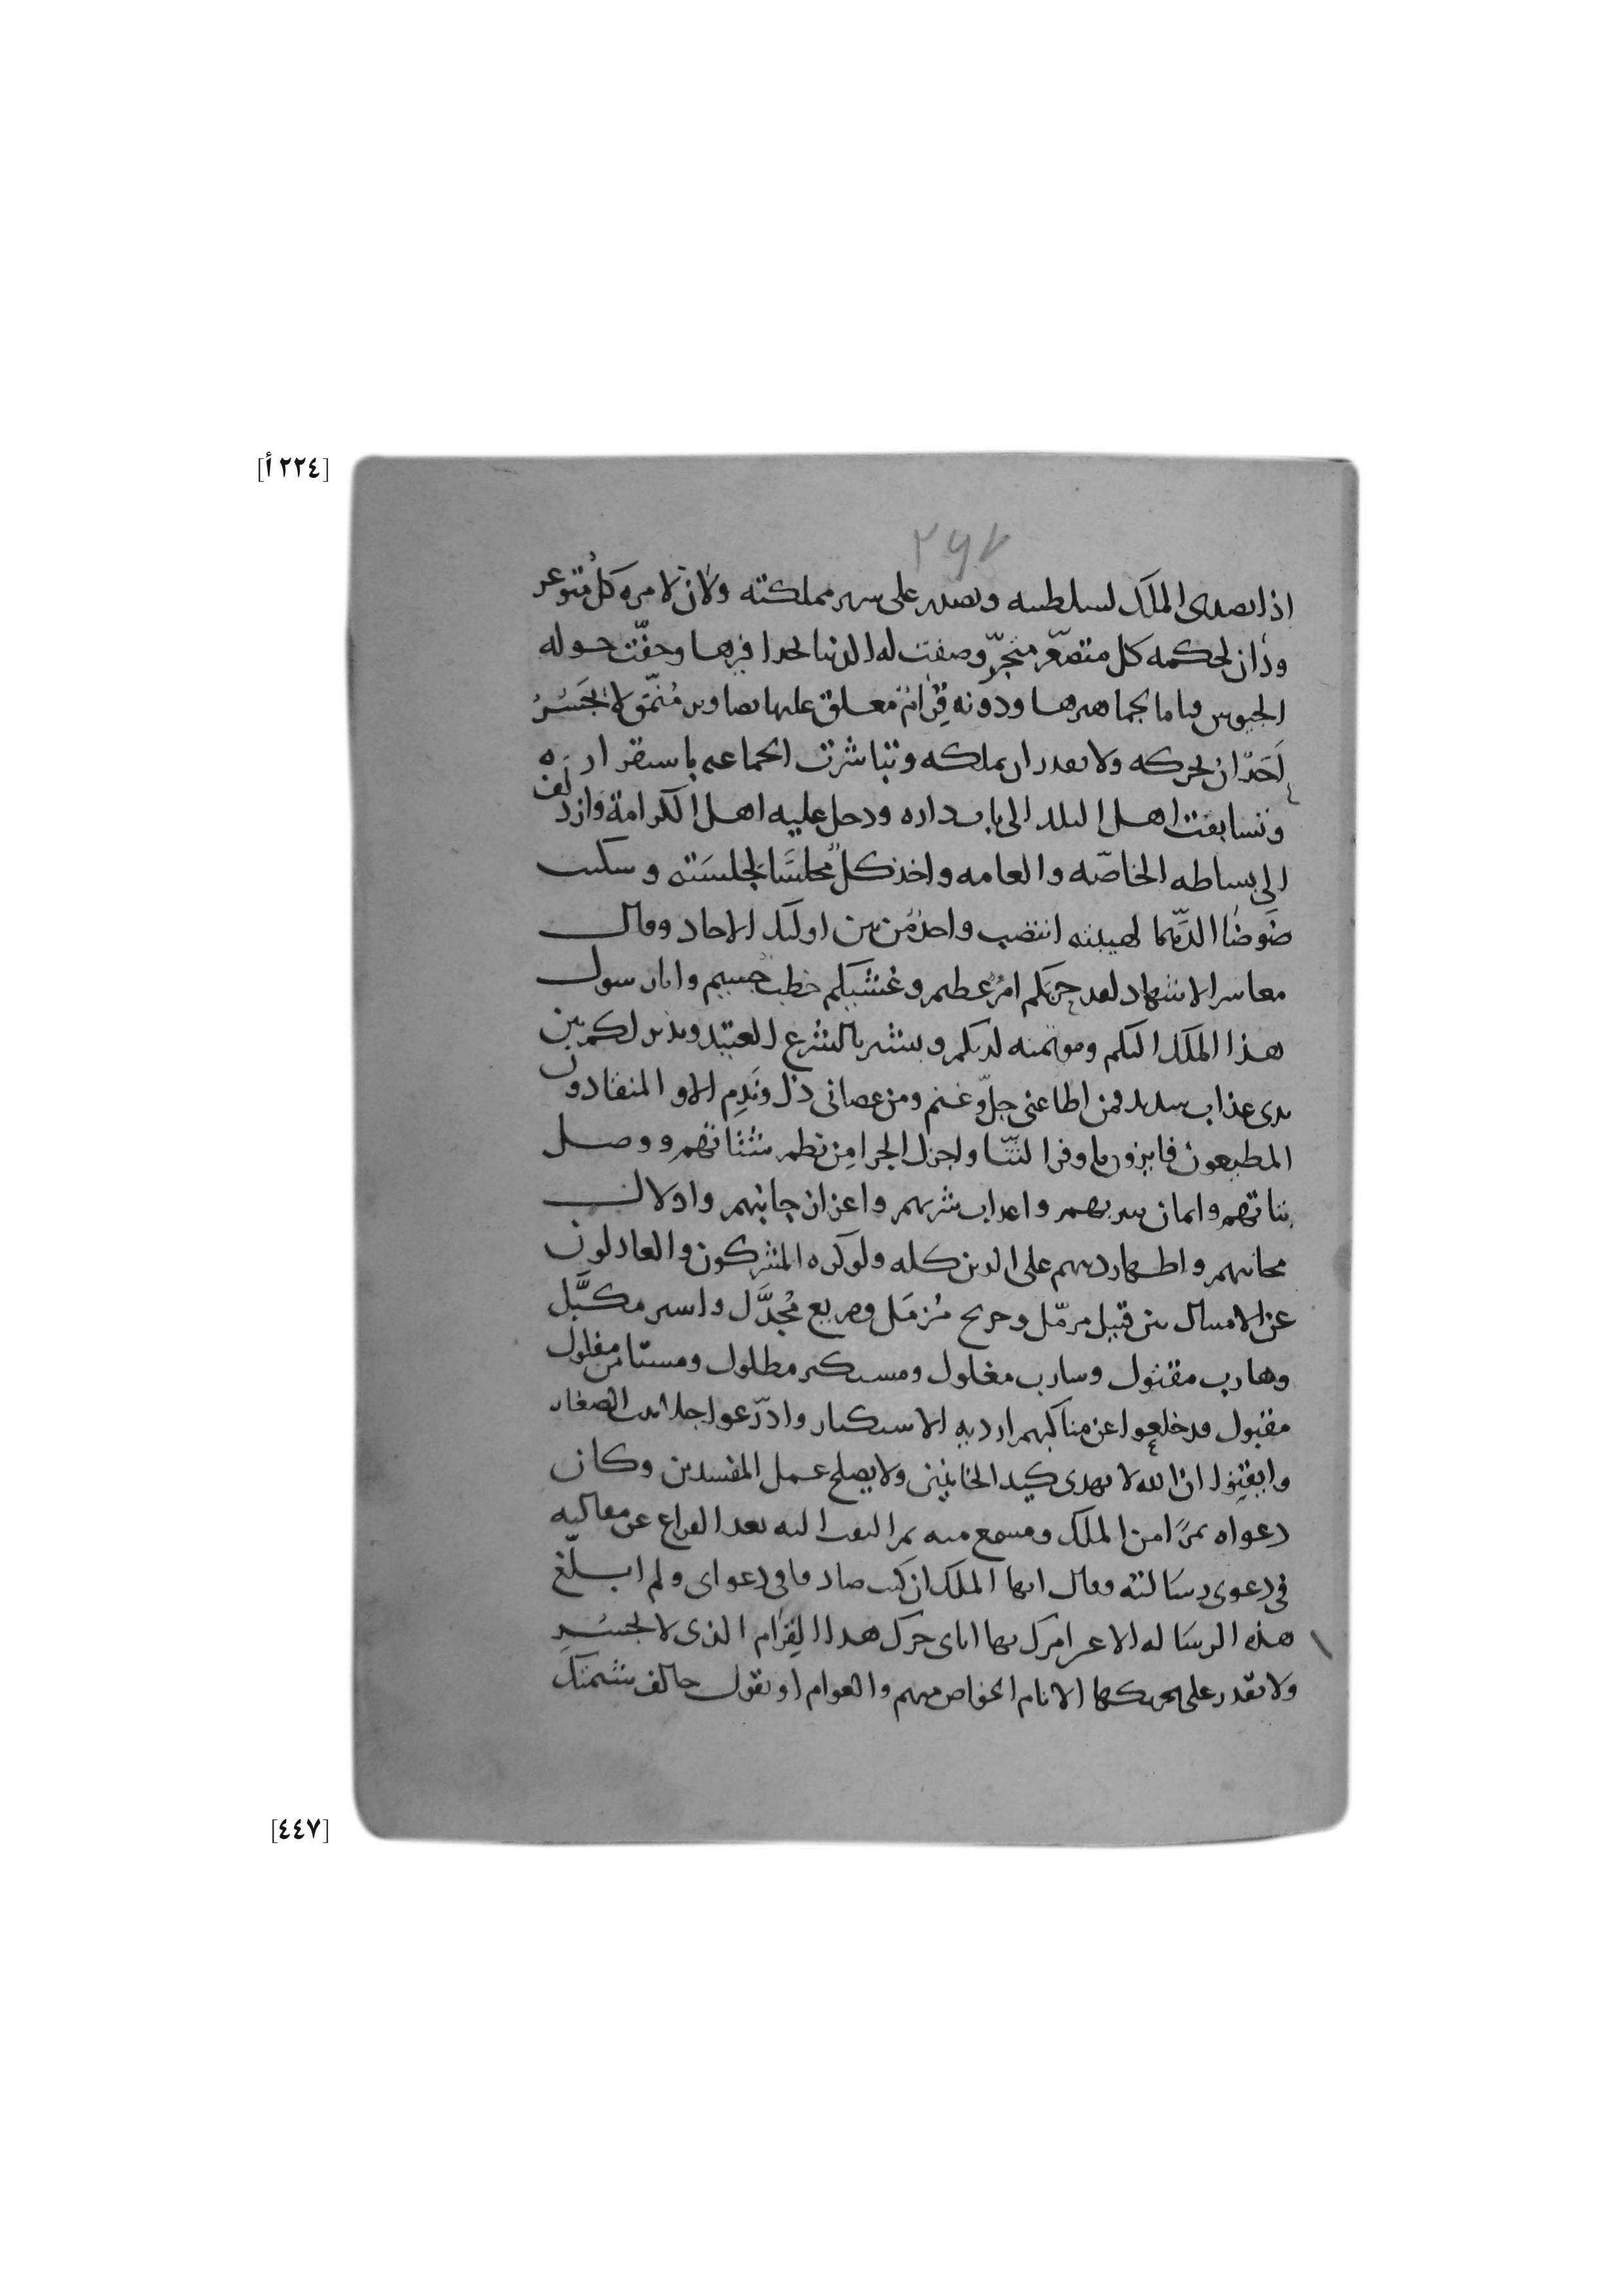 [٢٢٤ أ]
اذا تصدى الملك لسلطنته وتصدر على سرير مملكته ولان لامره كل متوعر
ودان لحكمه كل متصعّر متجبّر وصفت له الدنيا بحذافيرها وحفّت حوله
الجيوش قياما بجماهيرها ودونه قِرَامٌ معلق عليها تصاوير مُنمّق لا يَجْسُرُ
اَحَدٌ ان يحركه ولا يقدر ان يملكه وتباشرت الجماعه باستقراره
وتسابقت اهل البلد الى باب داره ودخل عليه اهل الكرامة وازدلف
الى بساطه الخاصّه والعامه واخذ كلٌ مجلسًا لجلسته وسكنت
ضَوضَا الدّهما لهيبته انتصب واحدٌ من بين اوليك الاحاد وقال
معاشر الاشهاد لقد حزبكم امرٌ عظيم وغشيكم خطبٌ جسيم وانا رسول
هذا الملك اليكم وموتمنه لديكم وبشير بالشرع العتيد ونذير لكم بين
يدي عذاب شديد فمن اطاعني جلّ وغنم ومن عصاني ذلّ ونَدِم الاو المنقادون
المطيعون فايزون باوفر الثنّا واجزل الجزا مِن نظم شتاتهم ووصل
بتاتهم وامان سربهم واعذاب شربهم واعزاز جانبهم واذلال
مجانبهم واظهار دينهم على الدين كله ولو كره المشركون والعادلون
عن الامتثال بين قتيل مرمّل وجريح مُزمَل وصريع مُجدَّل واسير مكبَّل
وهارب مقتول وسارب مغلول ومستكبر مطلول ومستامن مفلول
مقبول قد خلعوا عن مناكبهم اردية الاستكبار وادّرعوا جلابيب الصغار
وايقنوا ان الله لا يهدي كيد الخاينين ولا يصلح عمل المفسدين وكان
دعواه بمرًا من الملك ومسمع منه ثم التفت اليه بعد الفراغ عن مقاليه
في دعوى رسَالته وقال ايها الملك ان كنت صادقا في دعواى ولم ابلّغ
هذه الرسَاله الا عن امرك بها اياى حرك هذا القِرَام الذى لا يجسُر
ولا يقدر على تحريكها الانام الخواص منهم والعوام او نقول خالف شيمتك
[٤٤٧]